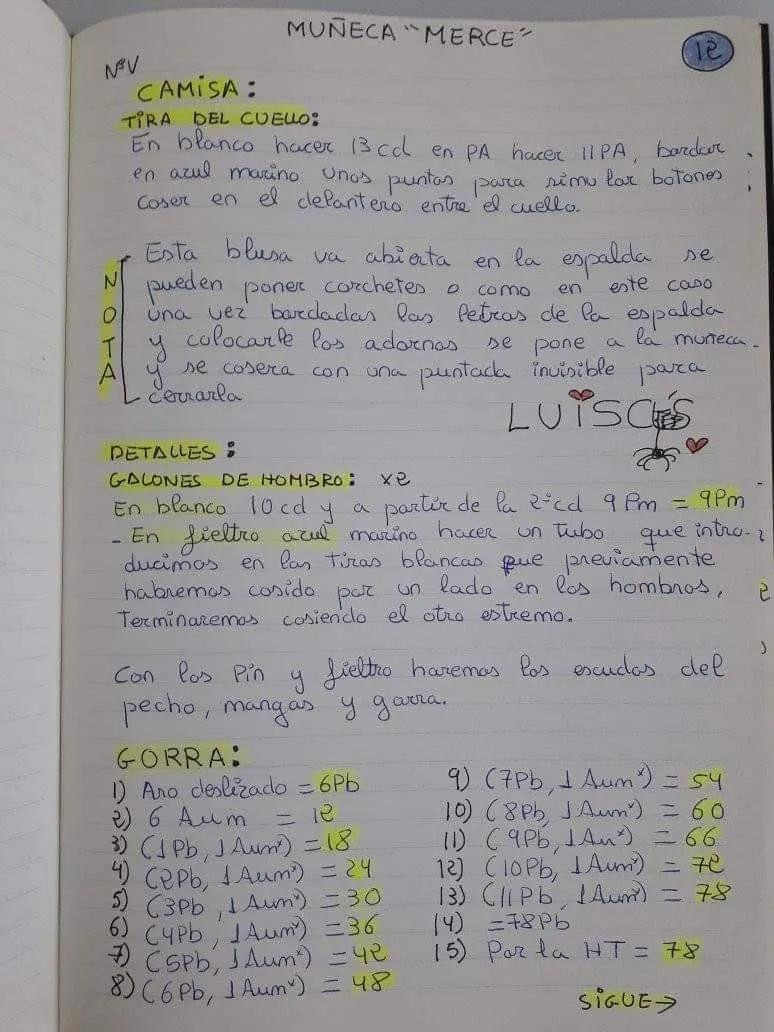 MUÑECA "MERCE"
12
NºV
CAMISA:
TIRA DEL CUELLO:
En blanco hacer 13 cd en PA hacer 11 PA, bordar
en azul marino unos puntos para simular botones
coser en el delantero entre el cuello.
NOTA
Esta blusa va abierta en la espalda se
pueden poner corchetes o como en este caso
una vez bordadas las letras de la espalda
y colocarle los adornos se pone a la muñeca
y se cosera con una puntada invisible para
cerrarla
LUISCÉS
DETALLES:
GALONES DE HOMBRO: x2
En blanco 10 cd y a partir de la 2ºcd 9 Pm = 9Pm
- En fieltro azul marino hacer un tubo que intro-
ducimos en las tiras blancas que previamente
habremos cosido por un lado en los hombros,
Terminaremos cosiendo el otro estremo.
Con los Pin y fieltro haremos los escudos del
pecho, mangas y garra.
GORRA:
1) Aro deslizado = 6Pb
2) 6 Aum = 12
3) (1Pb, 1 Aumˣ) = 18
4) (2Pb, 1 Aumˣ) = 24
5) (3Pb, 1 Aumˣ) = 30
6) (4Pb, 1 Aumˣ) = 36
7) (5Pb, 1 Aumˣ) = 42
8) (6Pb, 1 Aumˣ) = 48
9) (7Pb, 1 Aumˣ) = 54
10) (8Pb, 1 Aumˣ) = 60
11) (9Pb, 1 Auˣ) = 66
12) (10Pb, 1 Aumˣ) = 72
13) (11Pb, 1 Aumˣ) = 78
14) =78Pb
15) Por la HT = 78
SIGUE→